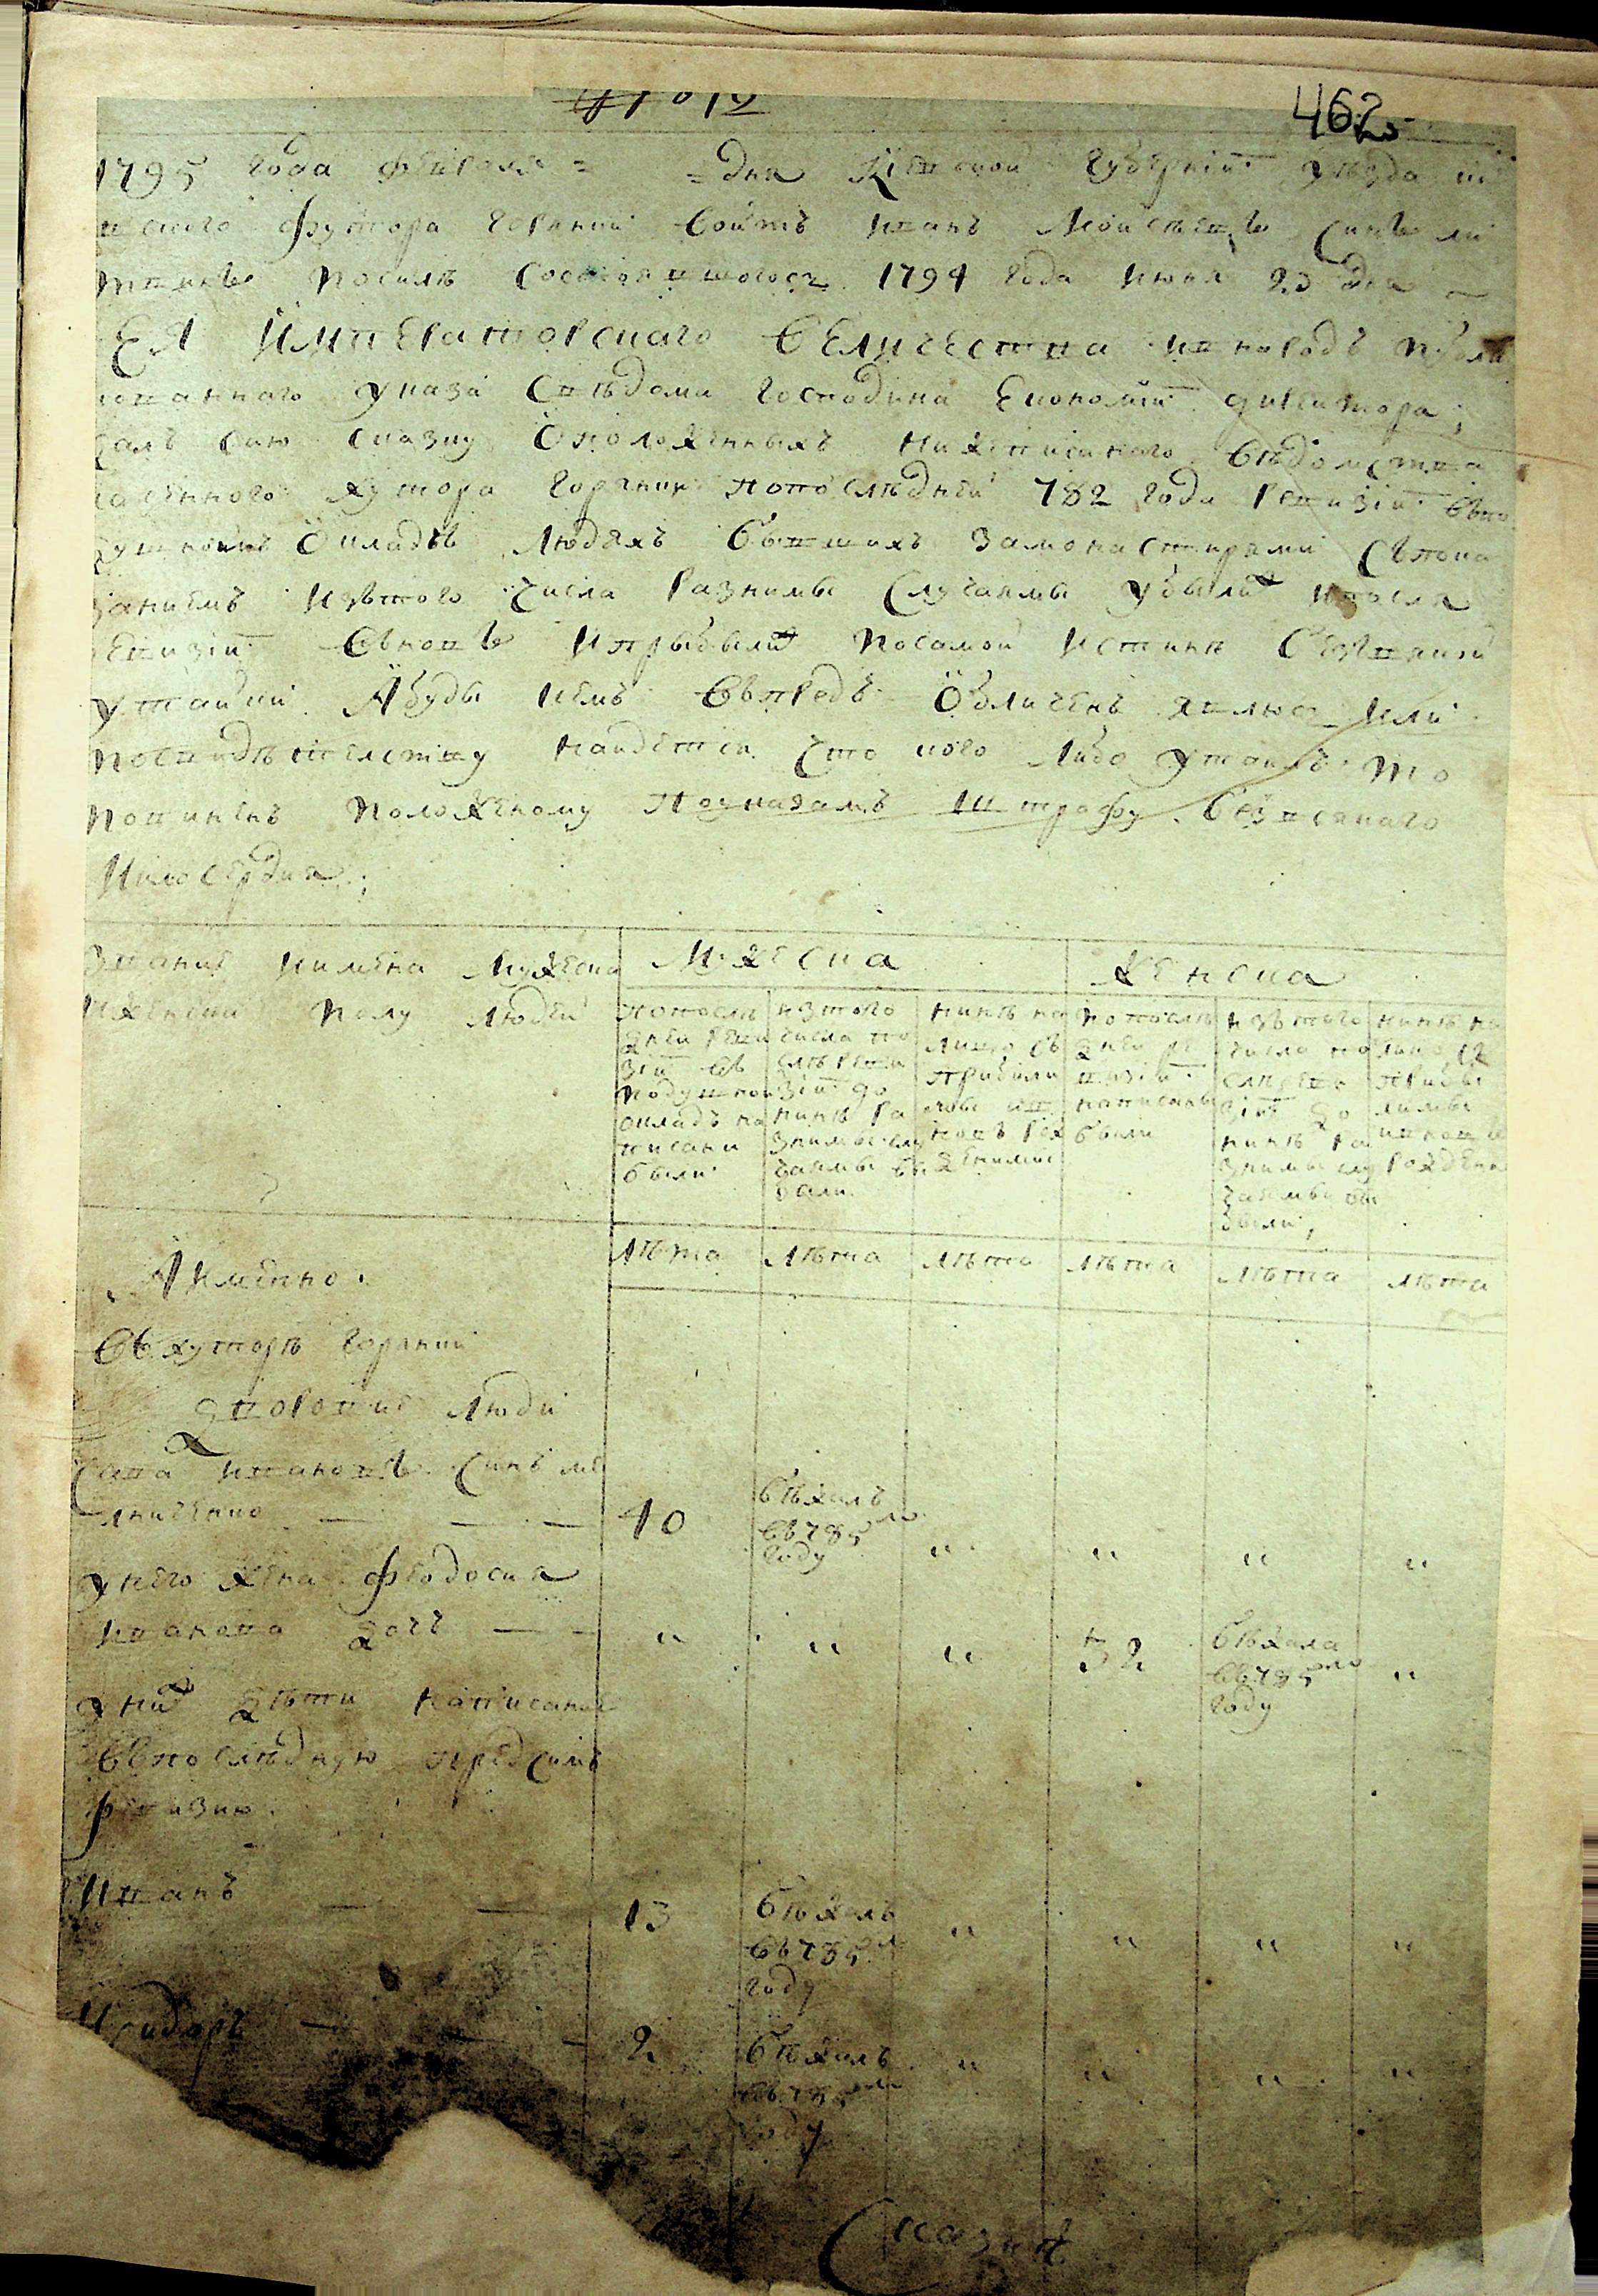 462
1795 года февраля = = дня Кіевской губерніи уѣзда
хутора Горянки войтъ Иванъ Мойсѣевъ синъ
посилѣ состоявшогось 1794 года июня 23 дня
ЕЯ Императорскаго Величества и въ народъ публи
кованнаго указа сведома господина економіи директора;
далъ сию сказку о положенныхъ нижеписаного вѣдомства
казенного хутора Горянки попослѣдней 782 года ревизіи впо
душномъ окладѣ людяхъ бывшихъ замонастирями спока
заниемъ изътого числа разними случаями убылих ипосля
ревизіи вновѣ ипрыбылих посамой истинѣ безъ всякой
утайки Абуде кемъ въпредь обличенъ явлюсь или
посвидѣтелству найдется что кого либо утаилъ то
повиненъ положеному поуказамъ штрафу безъ всякаго
Милосердия;
Звание имена мужеска
иженска полу людей
Мужеска
Женска
попослѣ
дней реви
зіи въ
подушной
окладъ на
писани
были
изтого
числа по
слѣ реви
зіи до
нинѣ ра
зними слу
чаями ви
бали
нинѣ на
лицо съ
прибили
ми и в
новъ рож
денними
попослѣ
дней ре
визіи
написаны
были
изътого
числа по
слѣ реви
зіи до
нинѣ ра
зними слу
чаями ви
были;
нинѣ на
лицо съ
прибы
лими
и вновъ
рожденн
лѣта лѣта лѣта лѣта лѣта лѣта
А Именно.
Въ хуторѣ Горянки
дворовие люди
Сава Ивановъ синъ ме
лниченко — — — 40 бѣжалъ въ 785 мъ году " " " "
унего жена феодосия
Иванова дочъ — — " " " 32 бѣжала въ 785 мъ году "
уних дѣти написание
въпослѣдную предсимъ
ревизию.
Иванъ — — 13 бѣжалъ въ 785 м году " " " "
Исидоръ — — 2 бѣжалъ въ 785 м году " " " "
Сказка